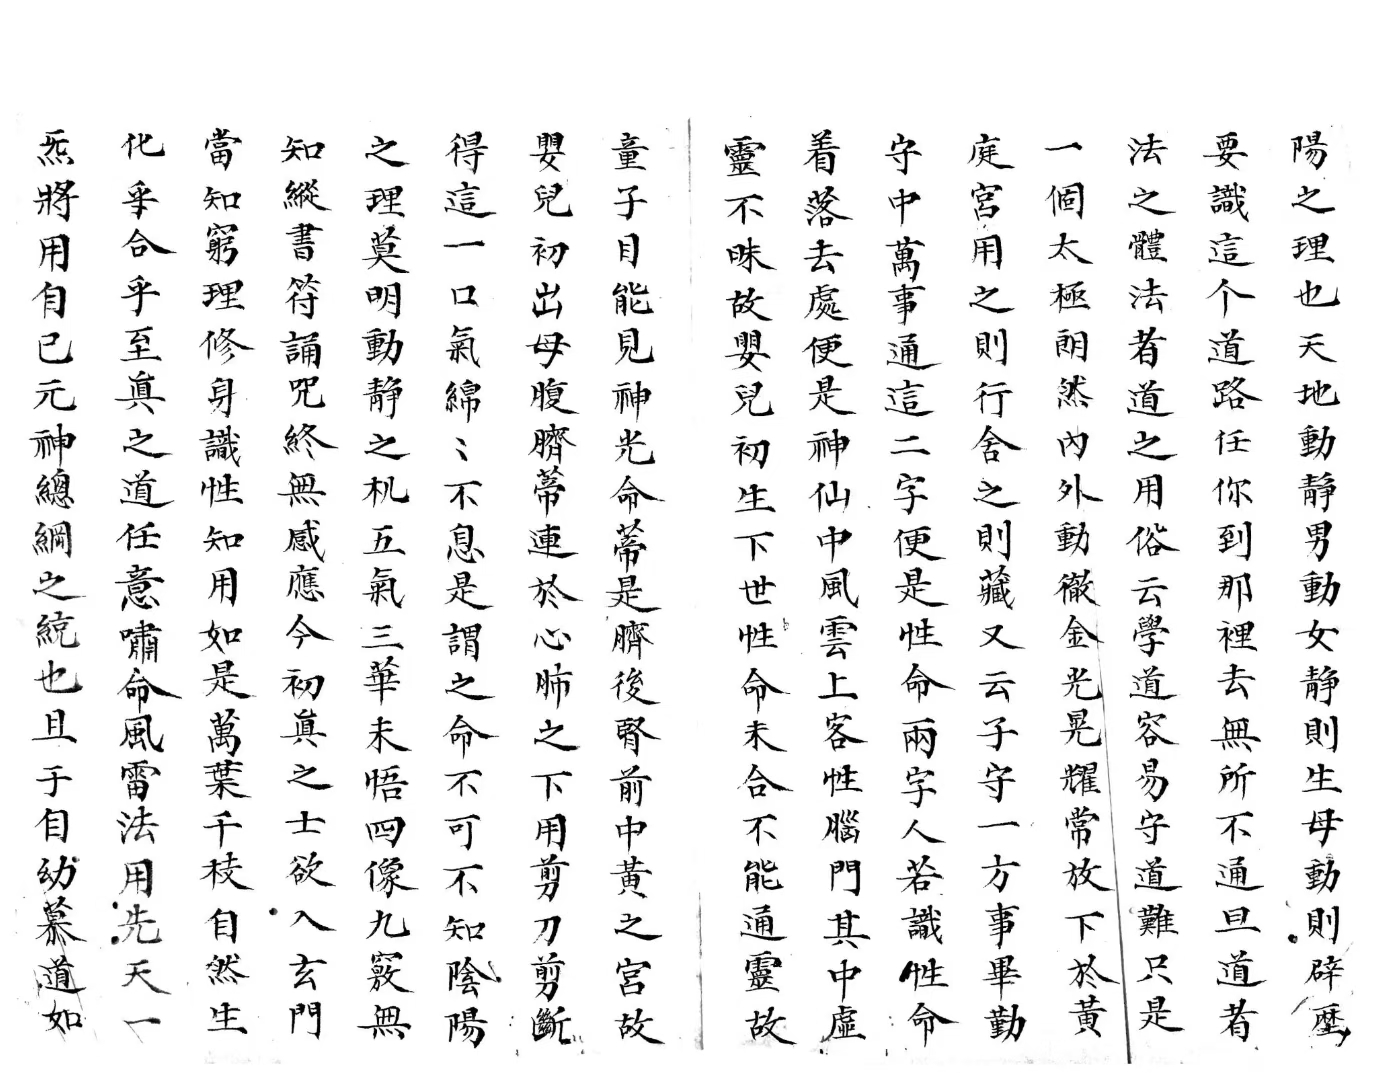 陽之理也天地動静男動女静則生母動則辟歷
要識這个道路任你到那裡去無所不通旦道者
法之體法者道之用俗云學道容易守道難只是
一個太極朗然內外動徹金光晃耀常放下於黃
庭宮用之則行舍之則藏又云子守一方事畢勤
守中萬事通這二字便是性命兩字人若識性命
着落去處便是神仙中風雲上客性腦門其中虛
靈不昧故嬰兒初生下世性命未合不能通靈故
童子目能見神光命蒂是臍後腎前中黃之宮故
嬰兒初出母腹臍蒂連於心肺之下用剪刀剪斷
得這一口氣綿〻不息是謂之命不可不知陰陽
之理莫明動静之机五氣三華未悟四像九竅無
知縱書符誦咒終無感應今初眞之士欲入玄門
當知窮理修身識性知用如是萬葉千枝自然生
化乎合乎至眞之道任意嘯命風雷法用先天一
炁將用自已元神總綱之統也且于自幼慕道如